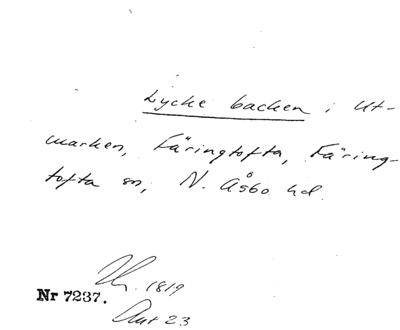 Lycke backen i Ut-
marken, Färingtofta, Färing-
tofta sn, N. Åsbo hd.
1819
Nr 7237.
Akt 23